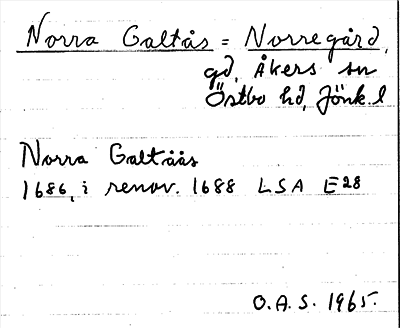 Norra Galtås = Norregård,
gd, Åkers sn
Östbo hd, Jönk. l
Norra Galtåås
1686, i renov. 1688 LSA E28
O.A.S. 1965.